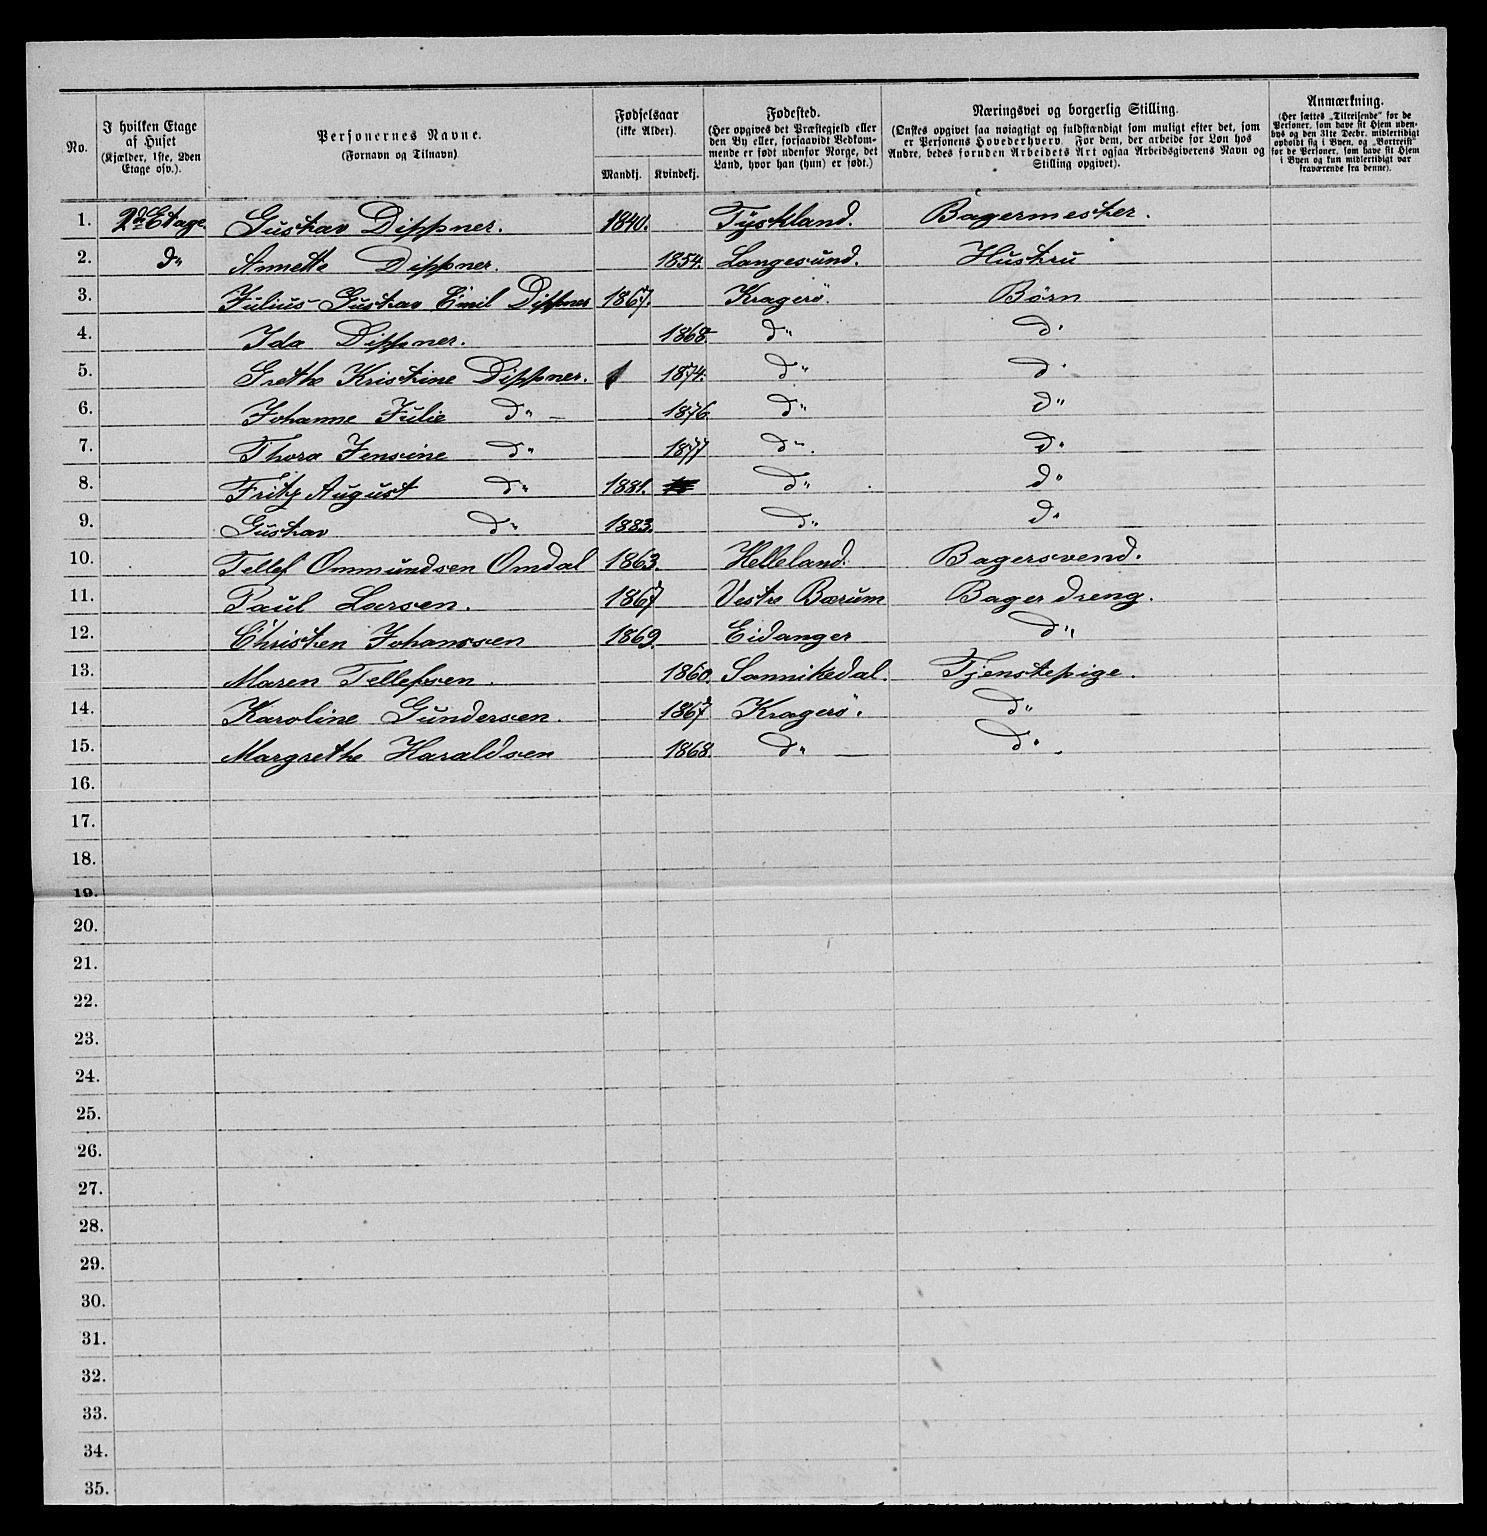 No. | I hvilken Etage af Huset (Kjælder, 1ste, 2den Etage osv.). | Personernes Navne. (Fornavn og Tilnavn) | Fødselsaar (ikke Alder). Mandkj. | Kvindekj. | Fødested. (Her opgives det Præstegjeld eller den By eller, forsaavidt Vedkommende er født udenfor Norge, det Land, hvor han (hun) er født.) | Næringsvei og borgerlig Stilling. (Ønskes opgivet saa nøiagtigt og fuldstændigt som muligt efter det, som er Personens Hovederhverv. For dem, der arbeide for Løn hos Andre, bedes foruden Arbeidets Art ogsaa Arbeidsgiverens Navn og Stilling opgivet). | Anmærkning. (Her sættes „Tilreisende" for de Personer, som have sit Hjem udenbys og den 31te Decbr. midlertidigt opholdt sig i Byen, og „Bortreist" for de Personer, som have sit Hjem i Byen og kun midlertidigt var fraværende fra denne).
1. 2d Etage. Gustav Dippner. 1840. Tyskland. Bagermester.
2. do Annette Dippner. 1854. Langesund. Hustru
3. Julius Gustav Emil Dippner 1867. Kragerö. Børn
4. Ida Dippner. 1868 do do
5. Grethe Kristine Dippner. 1874. do do
6. Johanne Julie do 1876. do do
7. Thora Jensine do 1877 do do
8. Fritz August do 1881. do do
9. Gustav do 1883. do do
10. Tellef Ommundsen Omdal 1863. Helleland. Bagersvend.
11. Paul Larsen. 1867 Vestre Bærum Bagerdreng.
12. Christen Johanssen 1869. Eidanger do
13. Maren Tellefsen. 1860. Sannikedal. Tjenstepige.
14. Karoline Gundersen. 1867 Kragerö. do
15. Margrethe Haraldsen 1868. do do
16.
17.
18.
19.
20.
21.
22.
23.
24.
25.
26.
27.
28.
29.
30.
31.
32.
33.
34.
35.